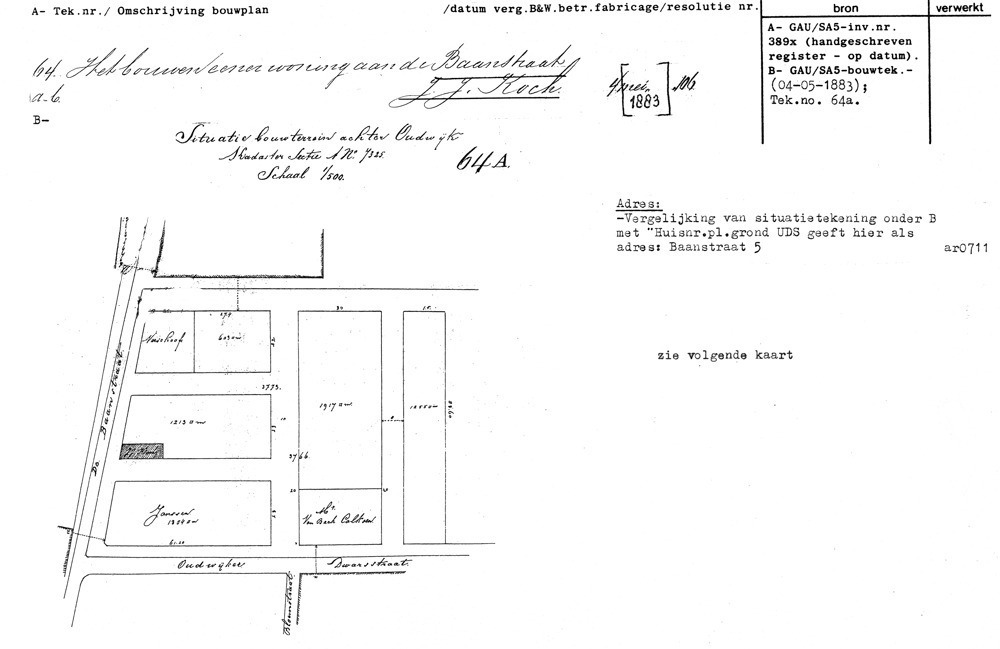 A- Tek.nr./ Omschrijving bouwplan
/datum verg.B&W.betr.fabricage/resolutie nr.
bron
verwerkt
64. Het bouwen eener woning aan de Baanstraat
J. J. Koch.
a-b.
B-
4/mei 1883 106
A- GAU/SA5-inv.nr.
389x (handgeschreven
register - op datum).
B- GAU/SA5-bouwtek.-
(04-05-1883);
Tek.no. 64a.
Situatie bouwterrein achter Oudwijk
Kadaster Sectie A No. 7325.
Schaal 1/500.
64 A.
Adres:
-Vergelijking van situatietekening onder B
met "Huisnr.pl.grond UDS geeft hier als
adres: Baanstraat 5
ar0711
zie volgende kaart
603
1213
1917
3773.
3766
De Baanstraat.
Janssen
61.20
Mr.
Oudwijker Dwarsstraat.